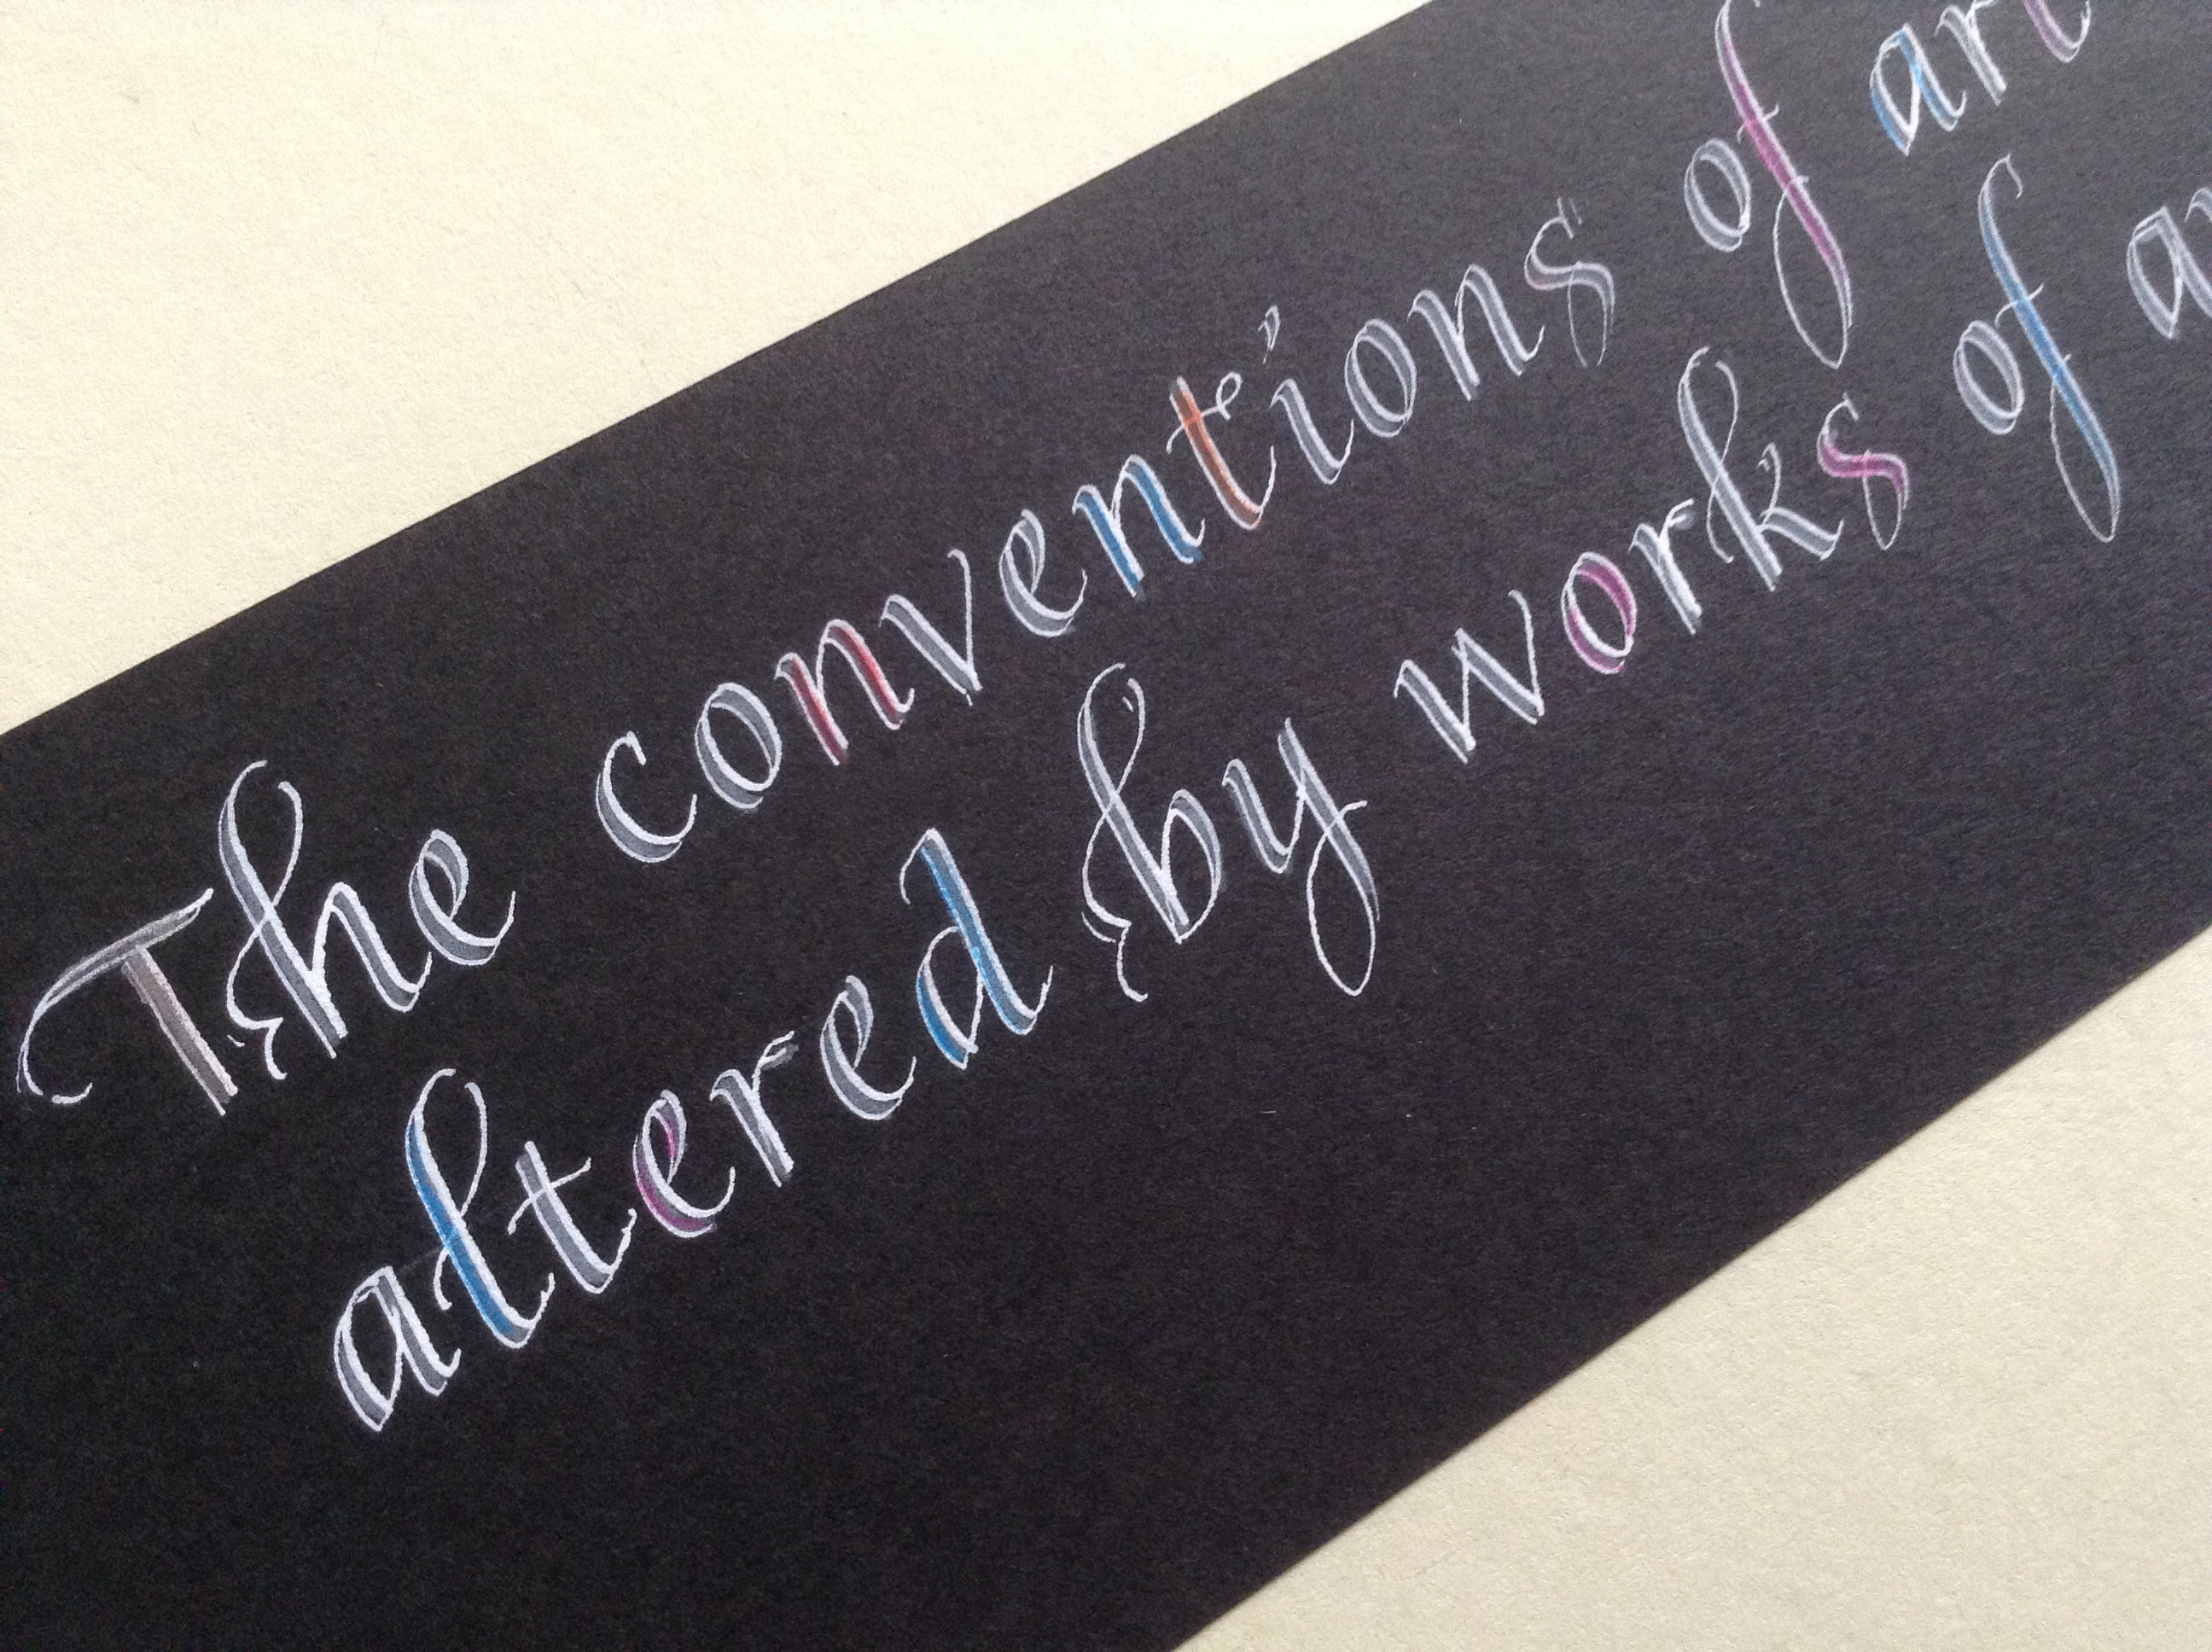 The conventions of art
altered by works of